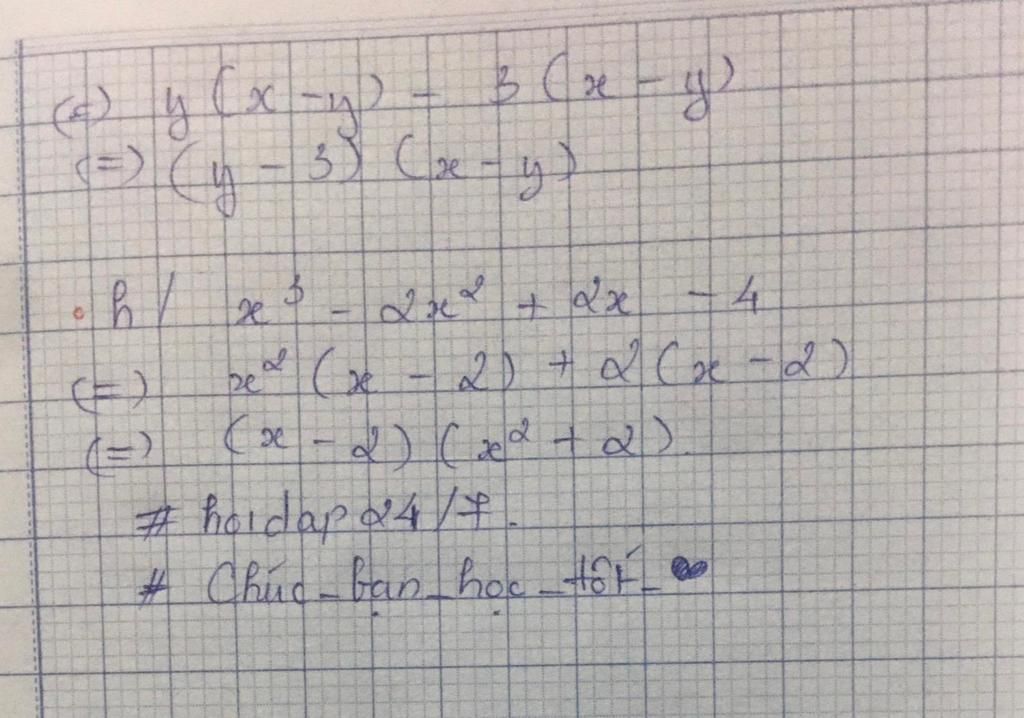 (=) y (x - y) - 3 (x - y)
(=) (y - 3) (x - y)
h / x³ - 2x² + 2x - 4
(=) x² (x - 2) + 2 (x - 2)
(=) (x - 2) (x² + 2).
# hoidap 24/7.
# Chúc_bạn_học_tốt_